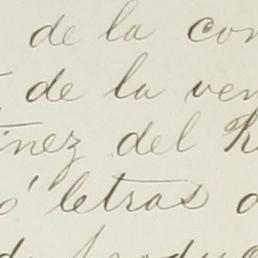 de la con
de la ven
ínez del R
ó letras d